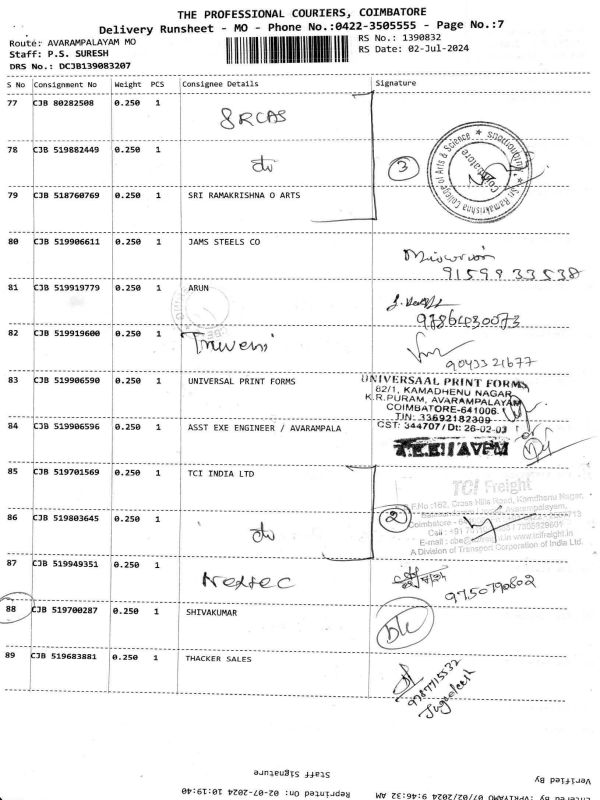 THE PROFESSIONAL COURIERS, COIMBATORE
Delivery Runsheet - MO - Phone No.:0422-3505555 - Page No.:7
Route: AVARAMPALAYAM MO
RS No.: 1390832
Staff: P.S. SURESH
RS Date: 02-Jul-2024
DRS No.: DCJB139083207
S No Consignment No Weight PCS Consignee Details Signature
77 CJB 80282508 0.250 1 SRCAS
78 CJB 519882449 0.250 1
Sri Ramakrishna College of Arts & Science * Coimbatore
3
79 CJB 518760769 0.250 1 SRI RAMAKRISHNA O ARTS
80 CJB 519906611 0.250 1 JAMS STEELS CO
9159933538
81 CJB 519919779 0.250 1 ARUN
9786430073
82 CJB 519919600 0.250 1 Triveni
9043321677
83 CJB 519906590 0.250 1 UNIVERSAL PRINT FORMS
UNIVERSAAL PRINT FORMS
82/1, KAMADHENU NAGAR
K.R.PURAM, AVARAMPALAYAM
COIMBATORE-641006.
TIN: 33692182309
CST: 344707/Dt: 26-02-03
84 CJB 519906596 0.250 1 ASST EXE ENGINEER / AVARAMPALA
A.E.E/AVPM
85 CJB 519701569 0.250 1 TCI INDIA LTD
TCI Freight
Cross Hills Road, Kamdhenu Nagar,
Avarampalayam,
86 CJB 519803645 0.250 1
2
Coimbatore
A Division of Transport Corporation of India Ltd.
87 CJB 519949351 0.250 1
9750790802
88 CJB 519700287 0.250 1 SHIVAKUMAR
89 CJB 519683881 0.250 1 THACKER SALES
9787715532
Jugadeesh
Staff Signature
Verified By
Reprinted On: 02-07-2024 10:19:40
by: VPRIYAMO 07/02/2024 9:46:32 AM